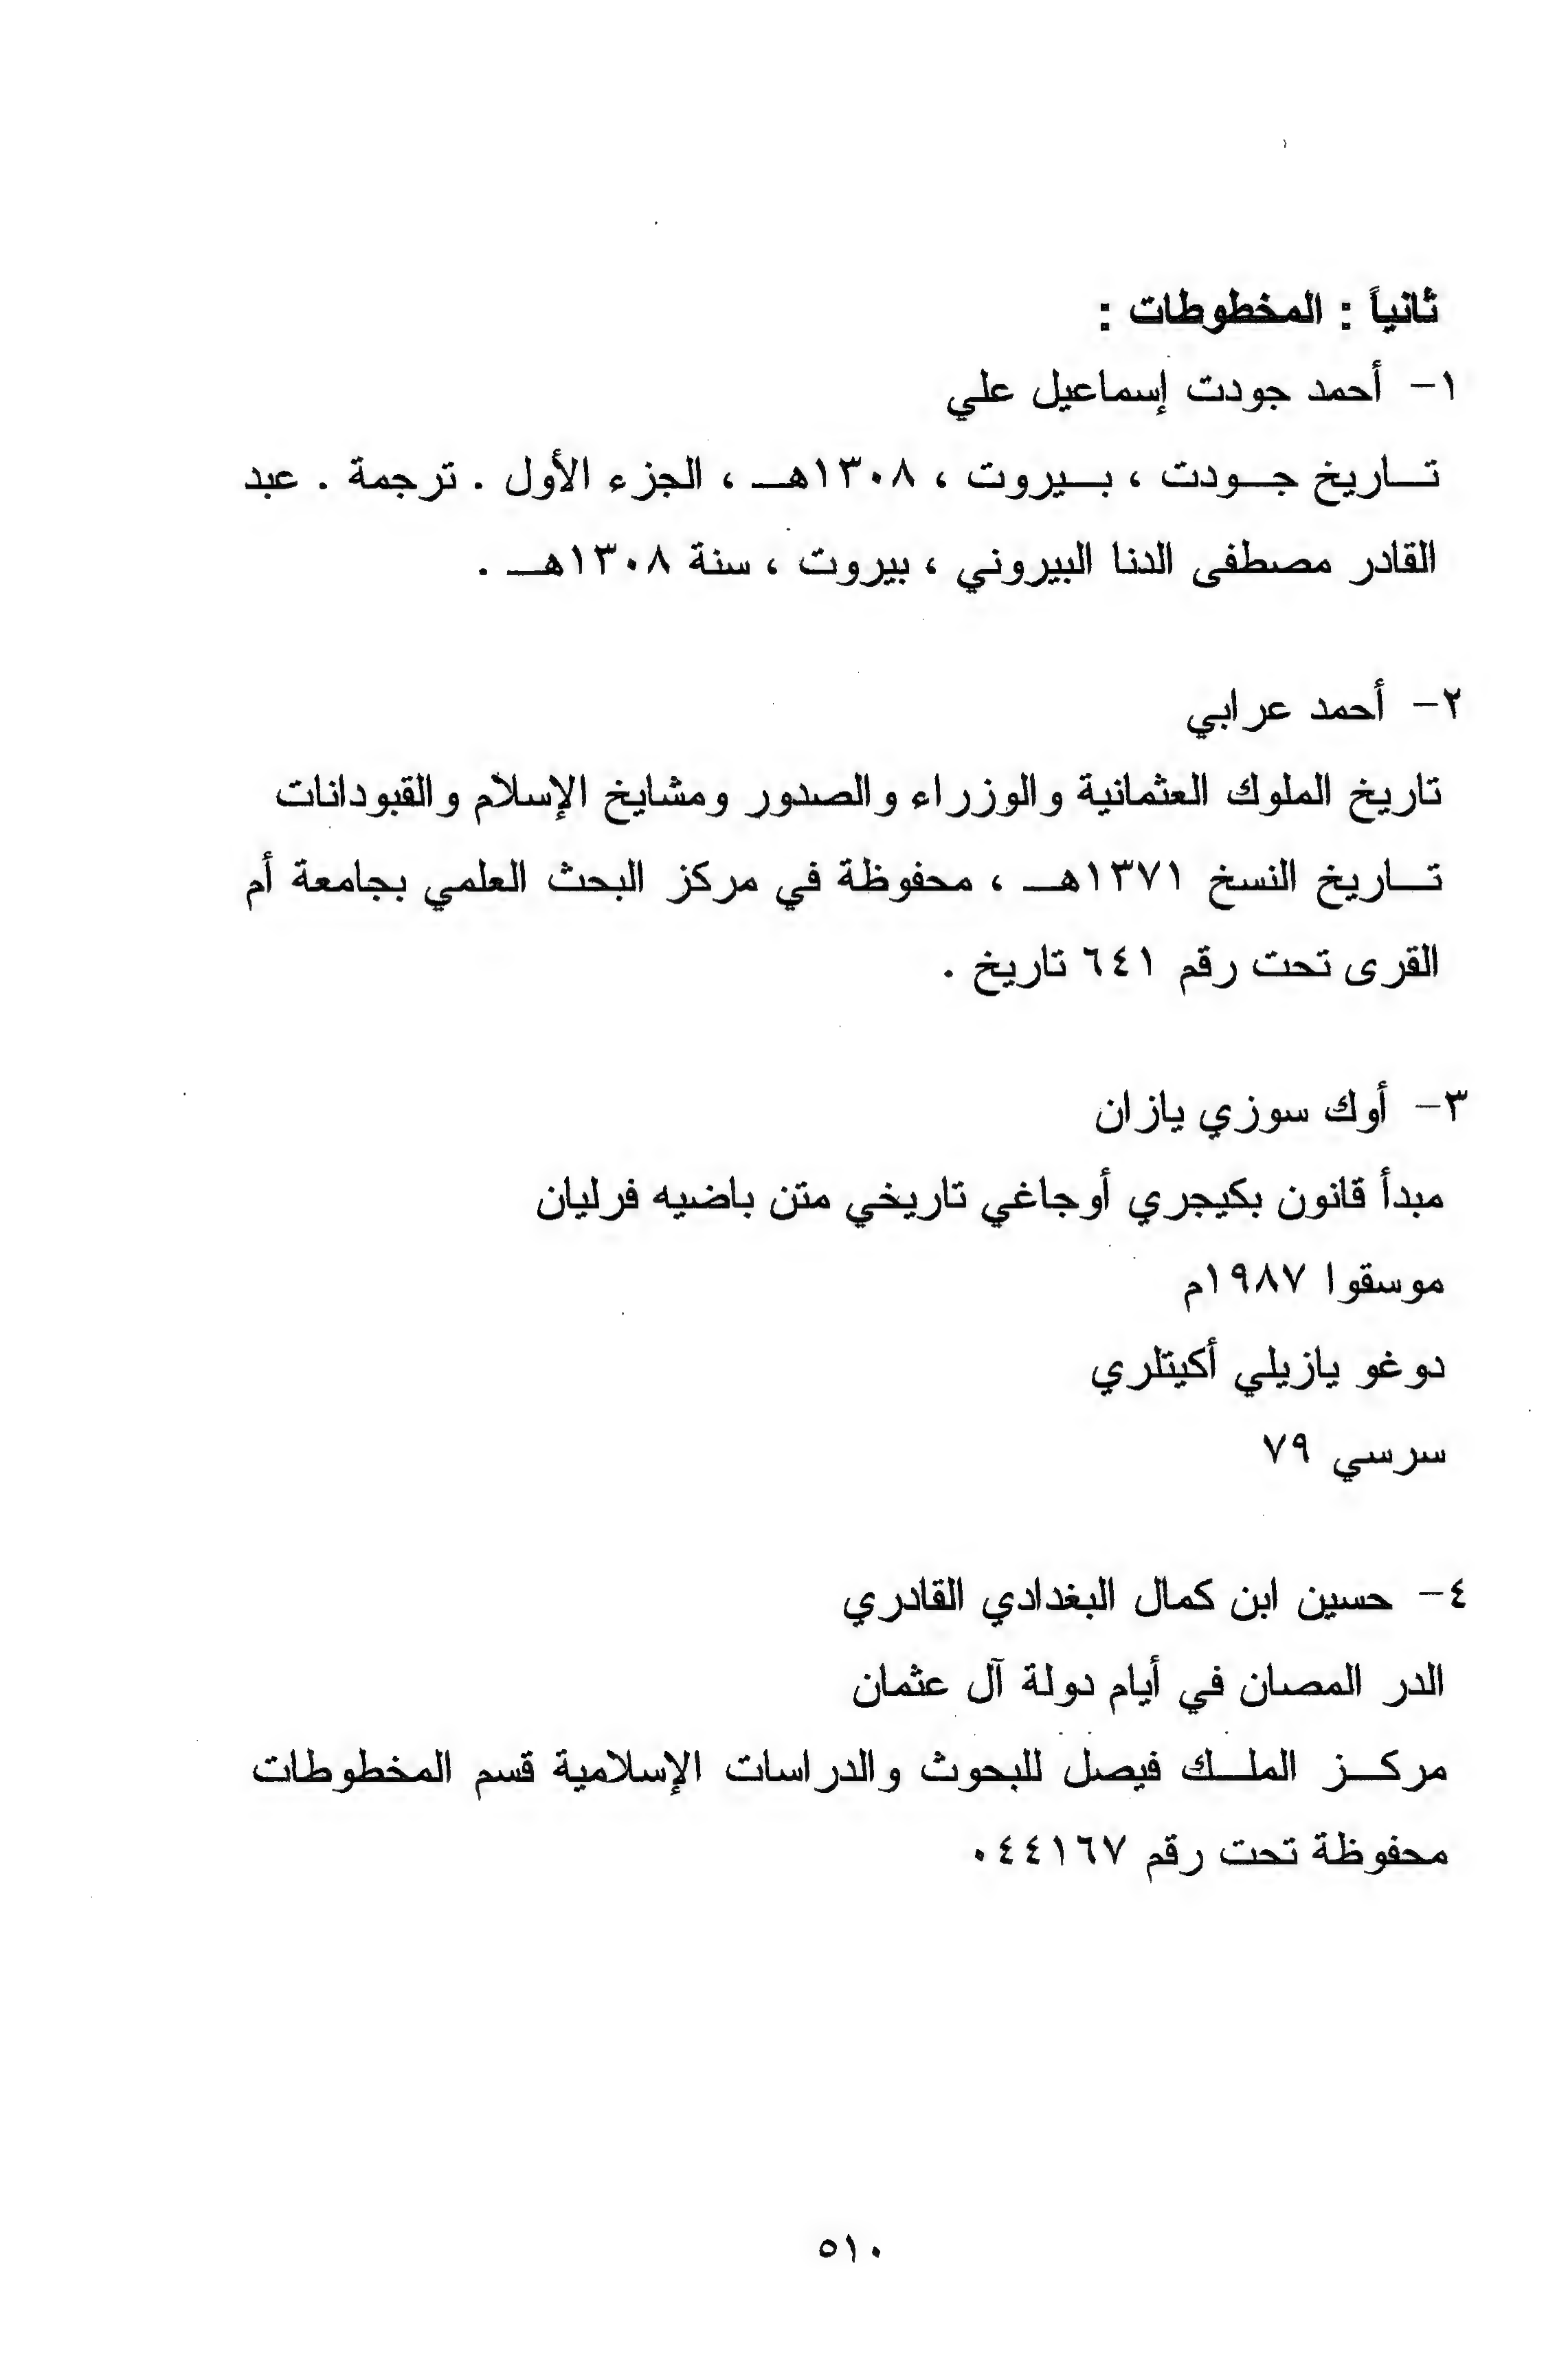 ثانياً : المخطوطات :
١- أحمد جودت إسماعيل علي
تاريخ جودت ، بيروت ، ١٣٠٨هـ ، الجزء الأول . ترجمة . عبد
القادر مصطفى الدنا البيروني ، بيروت ، سنة ١٣٠٨هـ .
٢- أحمد عرابي
تاريخ الملوك العثمانية والوزراء والصدور ومشايخ الإسلام والقبودانات
تاريخ النسخ ١٣٧١هـ ، محفوظة في مركز البحث العلمي بجامعة أم
القرى تحت رقم ٦٤١ تاريخ .
٣- أوك سوزي يازان
مبدأ قانون بكيجري أوجاغي تاريخي متن باضيه فرليان
موسقوا ١٩٨٧م
دوغو يازيلي أكيتلري
سرسي ٧٩
٤- حسين ابن كمال البغدادي القادري
الدر المصان في أيام دولة آل عثمان
مركز الملك فيصل للبحوث والدراسات الإسلامية قسم المخطوطات
محفوظة تحت رقم ٠٤٤١٦٧
٥١٠